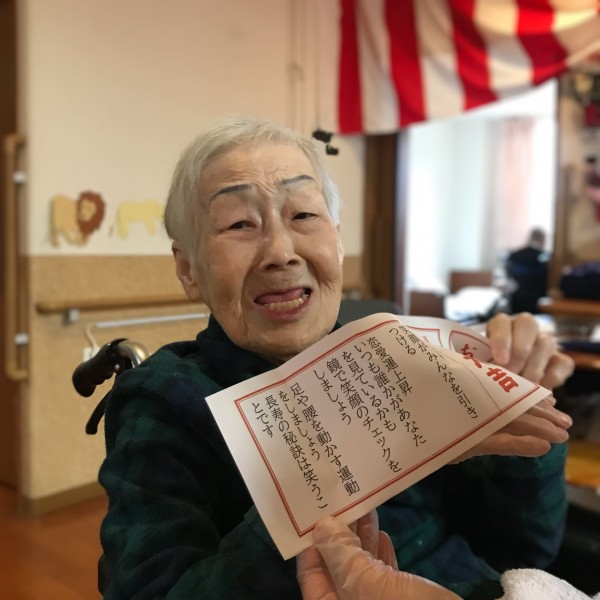 吉
笑顔がみんなを引き
つける
恋愛運上昇
いつも誰かがあなた
を見ているかも
鏡で笑顔のチェックを
しましょう
足や腰を動かす運動
をしましょう
長寿の秘訣は笑うこ
とです